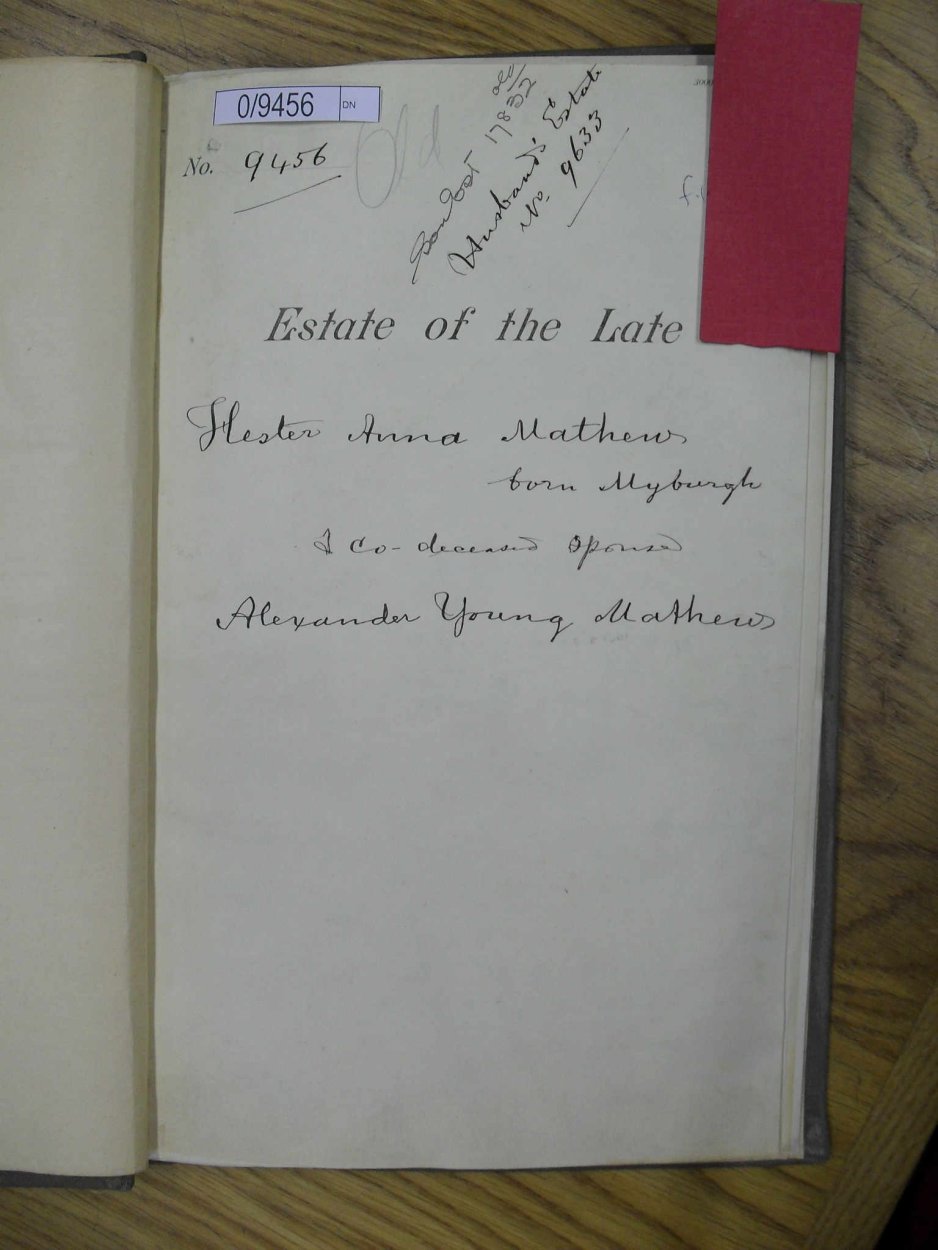 0/9456 DN
No. 9456
Old
old/
17832
Husband's Estate
No. 9633
Estate of the Late
Hester Anna Mathews
born Myburgh
& co-deceased Spouse
Alexander Young Mathews